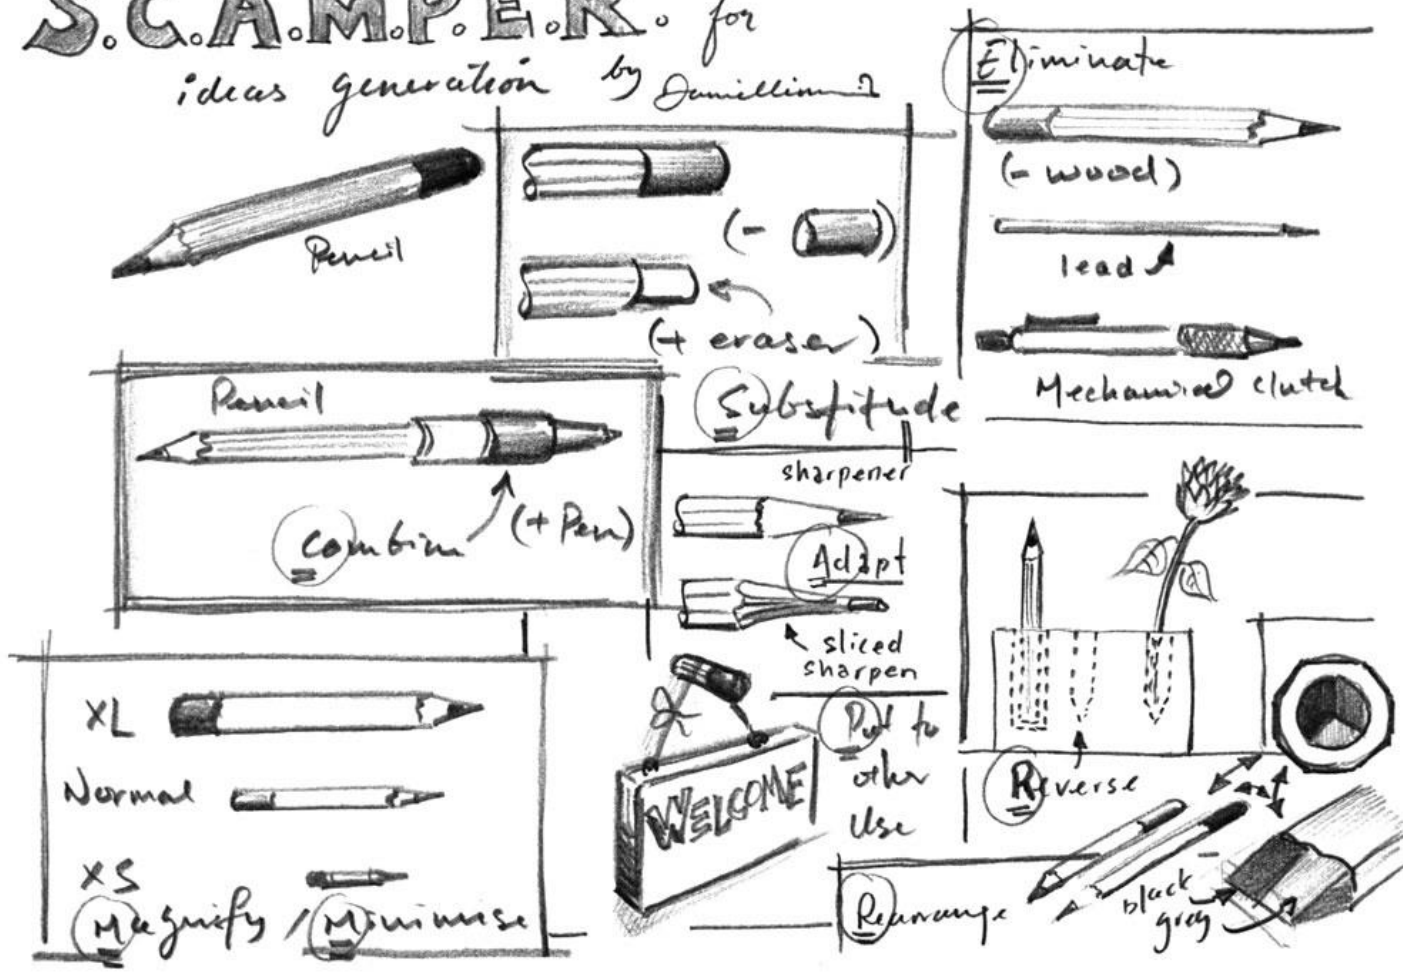 S.C.A.M.P.E.R. for
ideas generation by
Pencil
(-
)
(+ eraser)
Substitude
Eliminate
(- wood)
lead
Mechanical clutch
Pencil
Combine
(+ Pen)
sharpener
Adapt
sliced
sharpen
XL
Normal
XS
Magnify / Minimise
WELCOME
Put to
other
Use
Reverse
Rearrange
black
gray